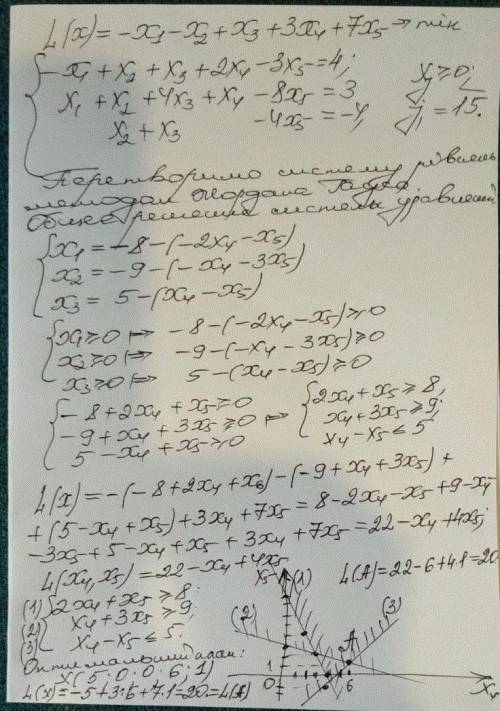 L(x) = -x₁ - x₂ + x₃ + 3x₄ + 7x₅ → min
-x₁ + x₂ + x₃ + 2x₄ - 3x₅ = 4;
x₁ + x₂ + 4x₃ + x₄ - 8x₅ = 3
x₂ + x₃ - 4x₅ = -4,
xⱼ ≥ 0;
j = 1,5.
Перетворимо систему рівнянь
методом Жордана Гауса
Общее решение системы уравнений
x₁ = -8 - (-2x₄ - x₅)
x₂ = -9 - (-x₄ - 3x₅)
x₃ = 5 - (x₄ - x₅)
x₁ ≥ 0 ⟹ -8 - (-2x₄ - x₅) ≥ 0
x₂ ≥ 0 ⟹ -9 - (-x₄ - 3x₅) ≥ 0
x₃ ≥ 0 ⟹ 5 - (x₄ - x₅) ≥ 0
-8 + 2x₄ + x₅ ≥ 0
-9 + x₄ + 3x₅ ≥ 0 ⟹
5 - x₄ + x₅ ≥ 0
2x₄ + x₅ ≥ 8,
x₄ + 3x₅ ≥ 9,
x₄ - x₅ ≤ 5
L(x) = -(-8 + 2x₄ + x₅) - (-9 + x₄ + 3x₅) +
+ (5 - x₄ + x₅) + 3x₄ + 7x₅ = 8 - 2x₄ - x₅ + 9 - x₄
- 3x₅ + 5 - x₄ + x₅ + 3x₄ + 7x₅ = 22 - x₄ + 4x₅;
L(x₄, x₅) = 22 - x₄ + 4x₅
(1) 2x₄ + x₅ ≥ 8;
(2) x₄ + 3x₅ ≥ 9;
(3) x₄ - x₅ ≤ 5.
Оптимальный план:
X(5; 0; 0; 6; 1)
L(x) = -5 + 3·6 + 7·1 = 20 = L(A)
L(A) = 22 - 6 + 4·1 = 20.
x₅
(1)
(2)
(3)
A
1
0
6
x₄